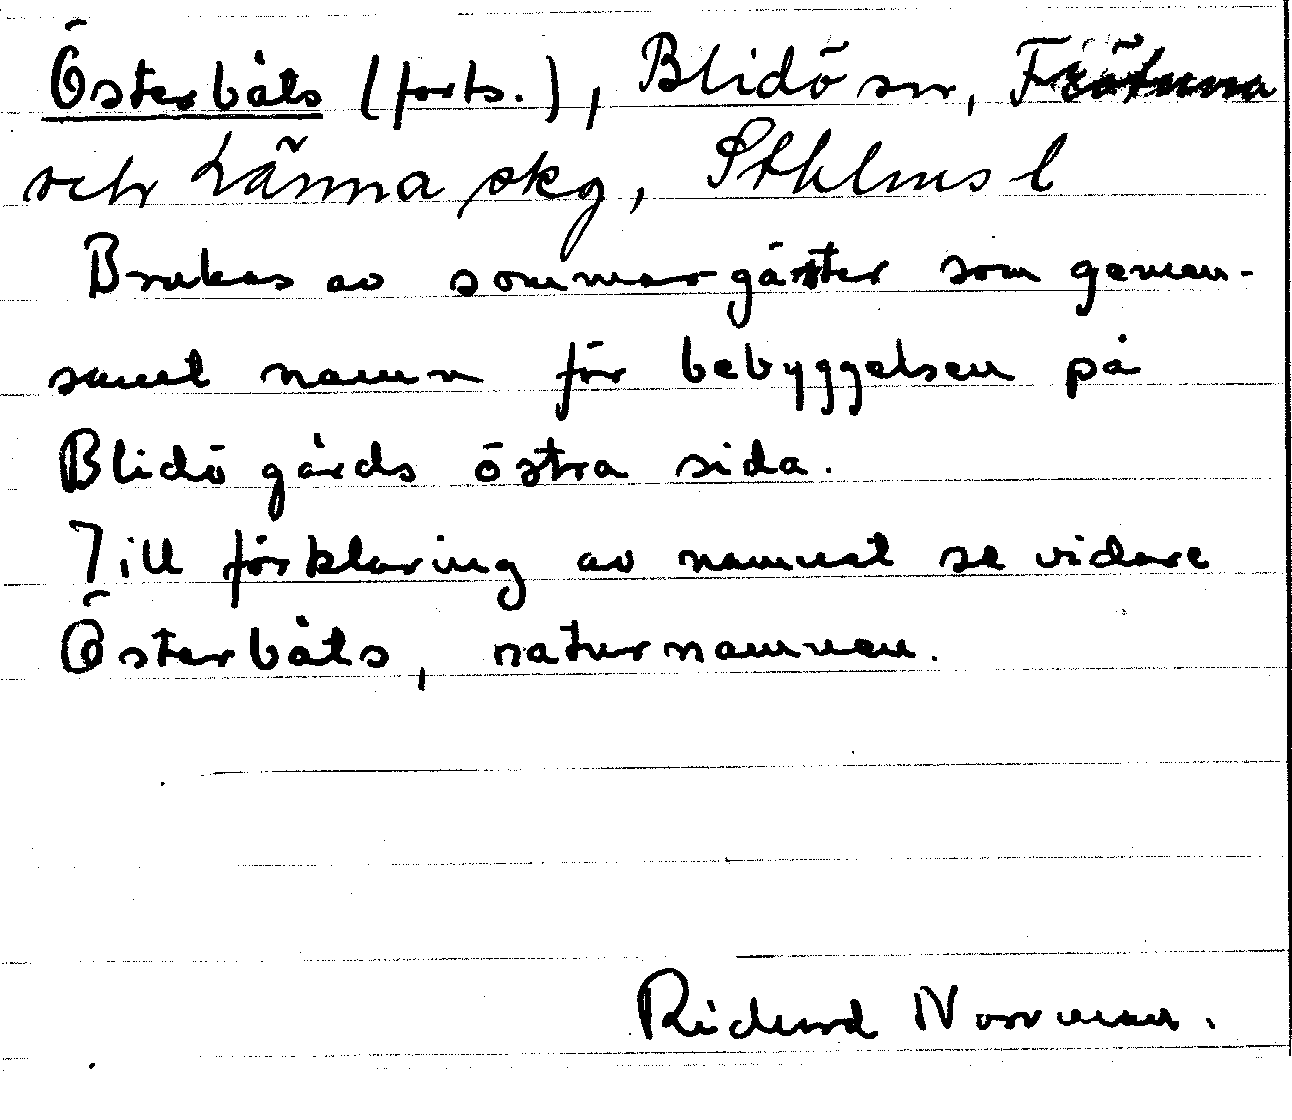 Österbåts (forts.), Blidö sn, Frötuna
och Länna skg, Sthlms l
Brukas av sommargäster som gemen-
samt namn för bebyggelsen på
Blidö gårds östra sida.
Till förklaring av namnet se vidare
Österbåts, naturnamnen.
Rickard Norrman.